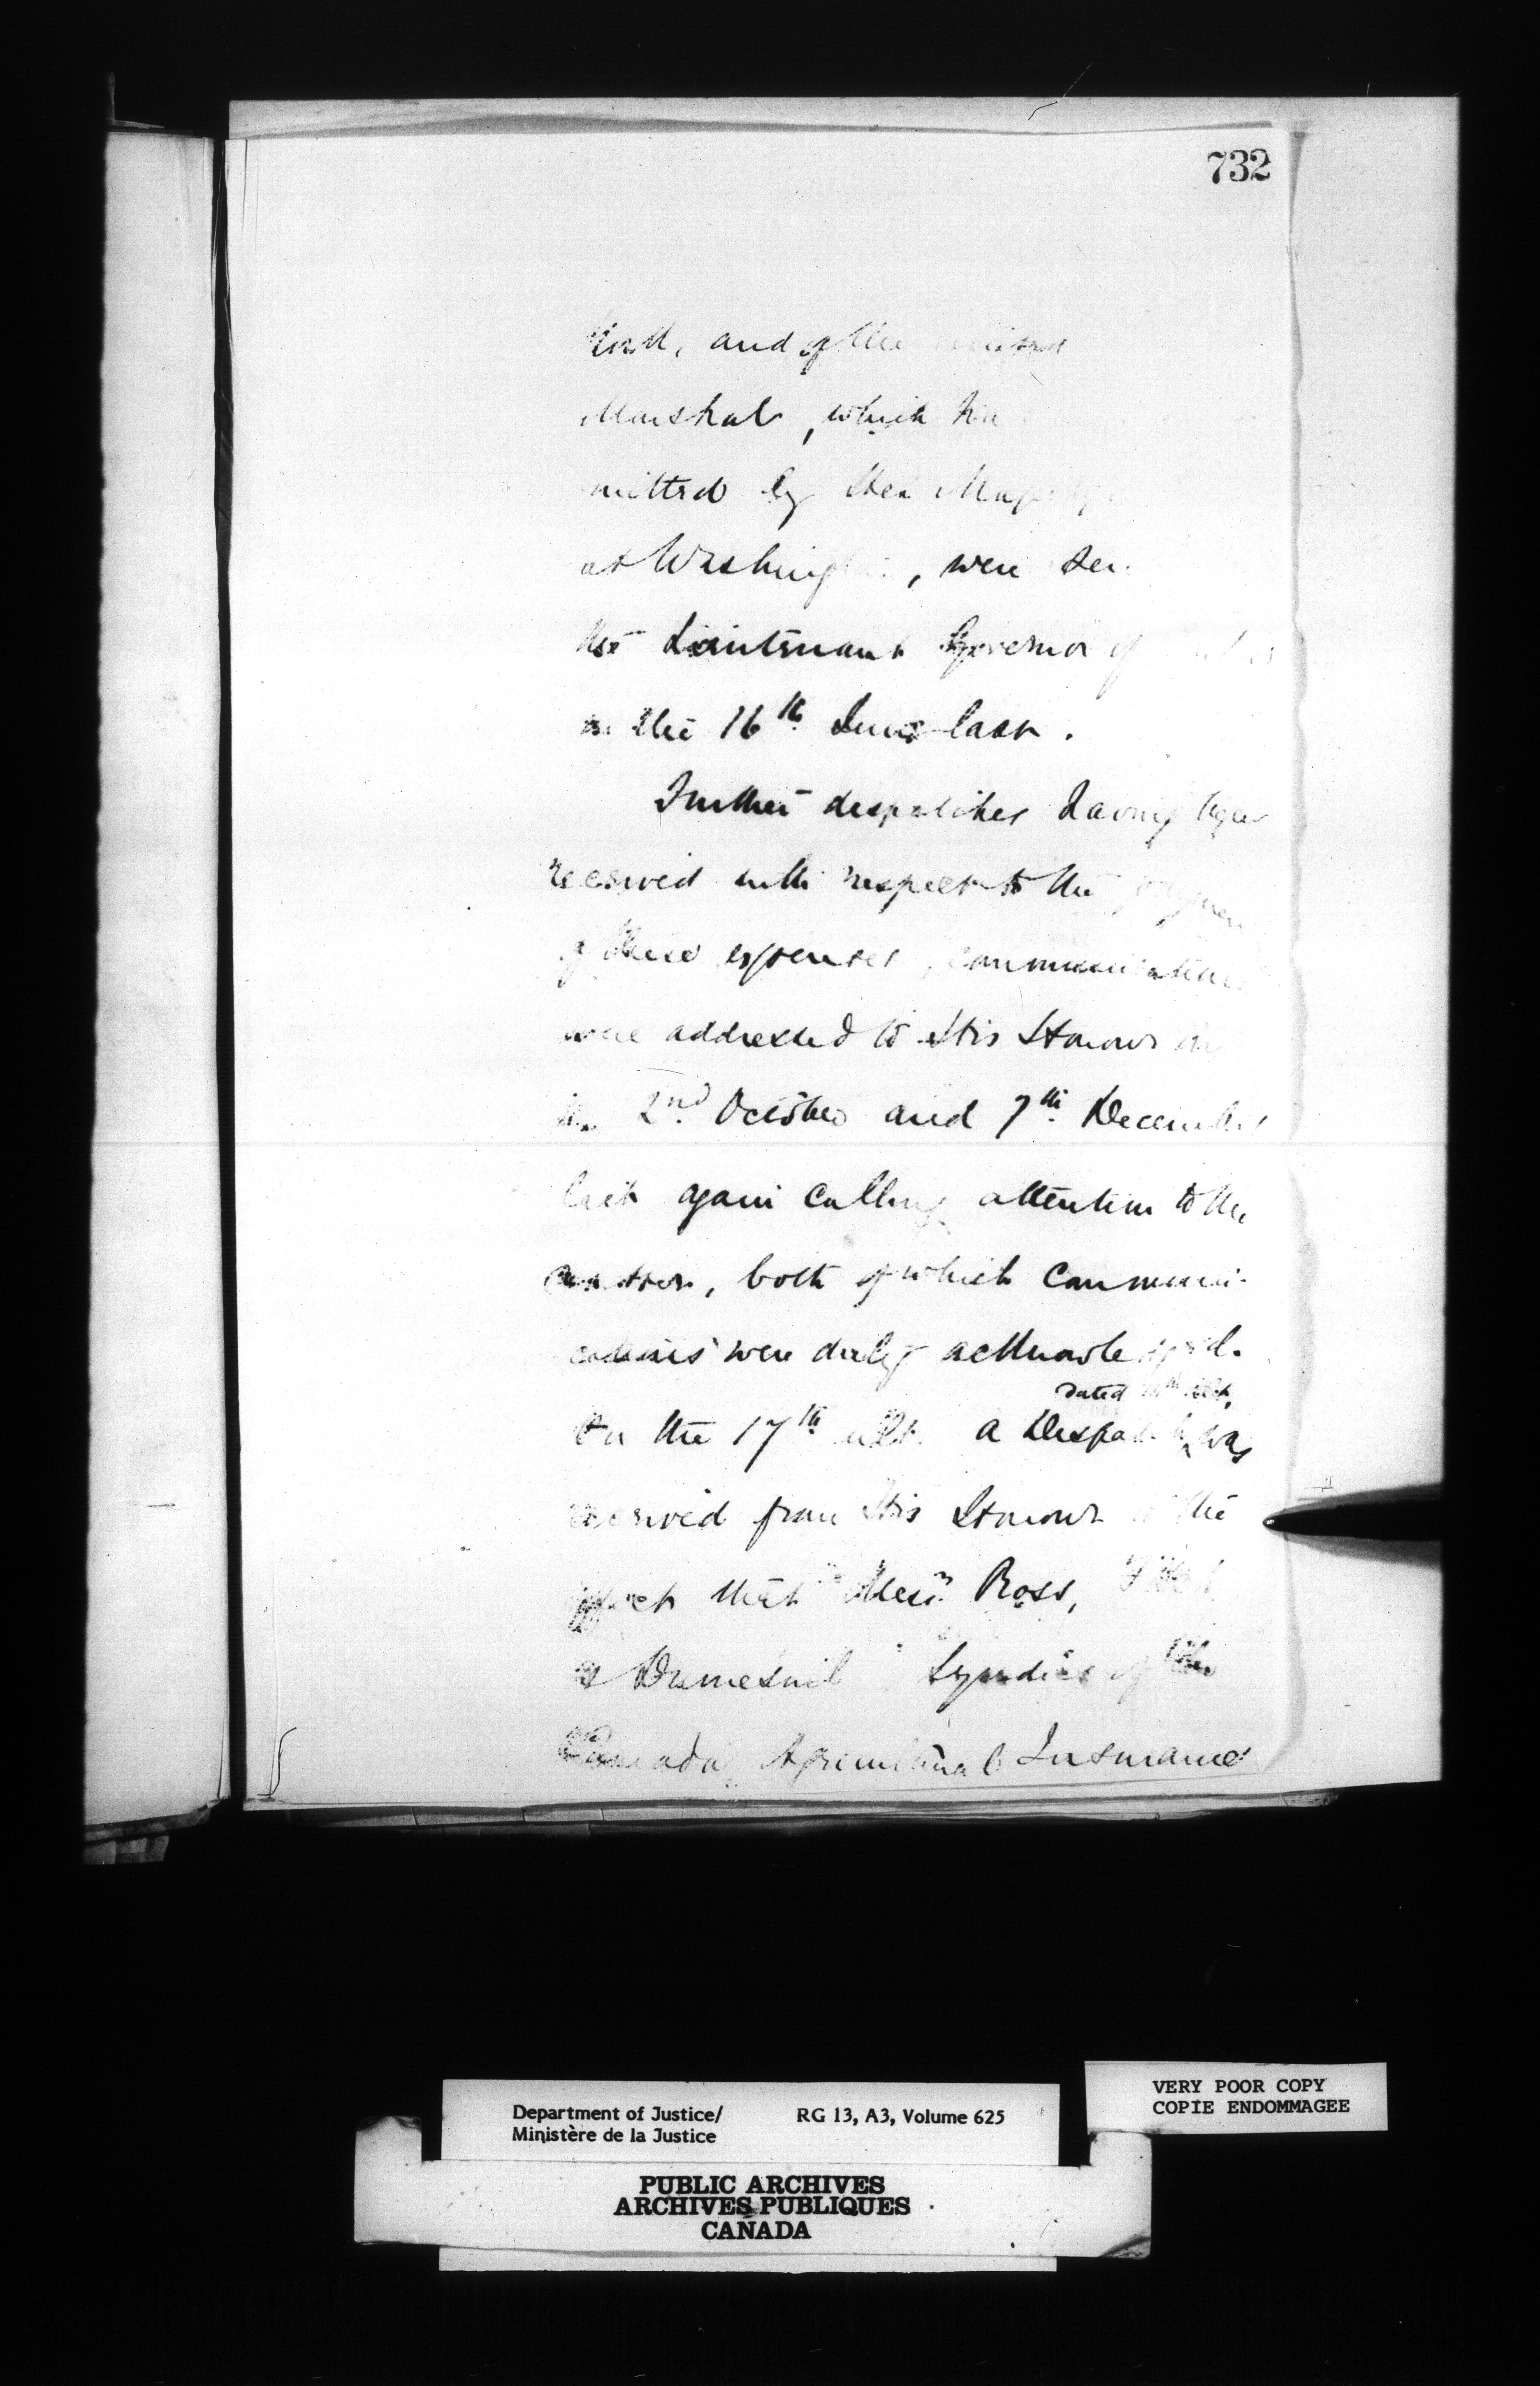 732
and of the
Marshal, which
mitted by Her
at , were
the Lieutenant Governor of
on the 16th June last.
Further despatches having been
received with respect to the
of these expenses, communications
were addressed to His Honour on
the 2nd October and 7th December
last again calling attention to the
matter, both of which communi-
cations were duly acknowledged.
dated ult,
On the 17th ult. a Despatch was
received from His Honour to the
effect that Messrs Ross,
& Dumesnil Syndics of the
Canada Agricultural Insurance
Department of Justice/
Ministère de la Justice
RG 13, A3, Volume 625
VERY POOR COPY
COPIE ENDOMMAGEE
PUBLIC ARCHIVES
ARCHIVES PUBLIQUES
CANADA